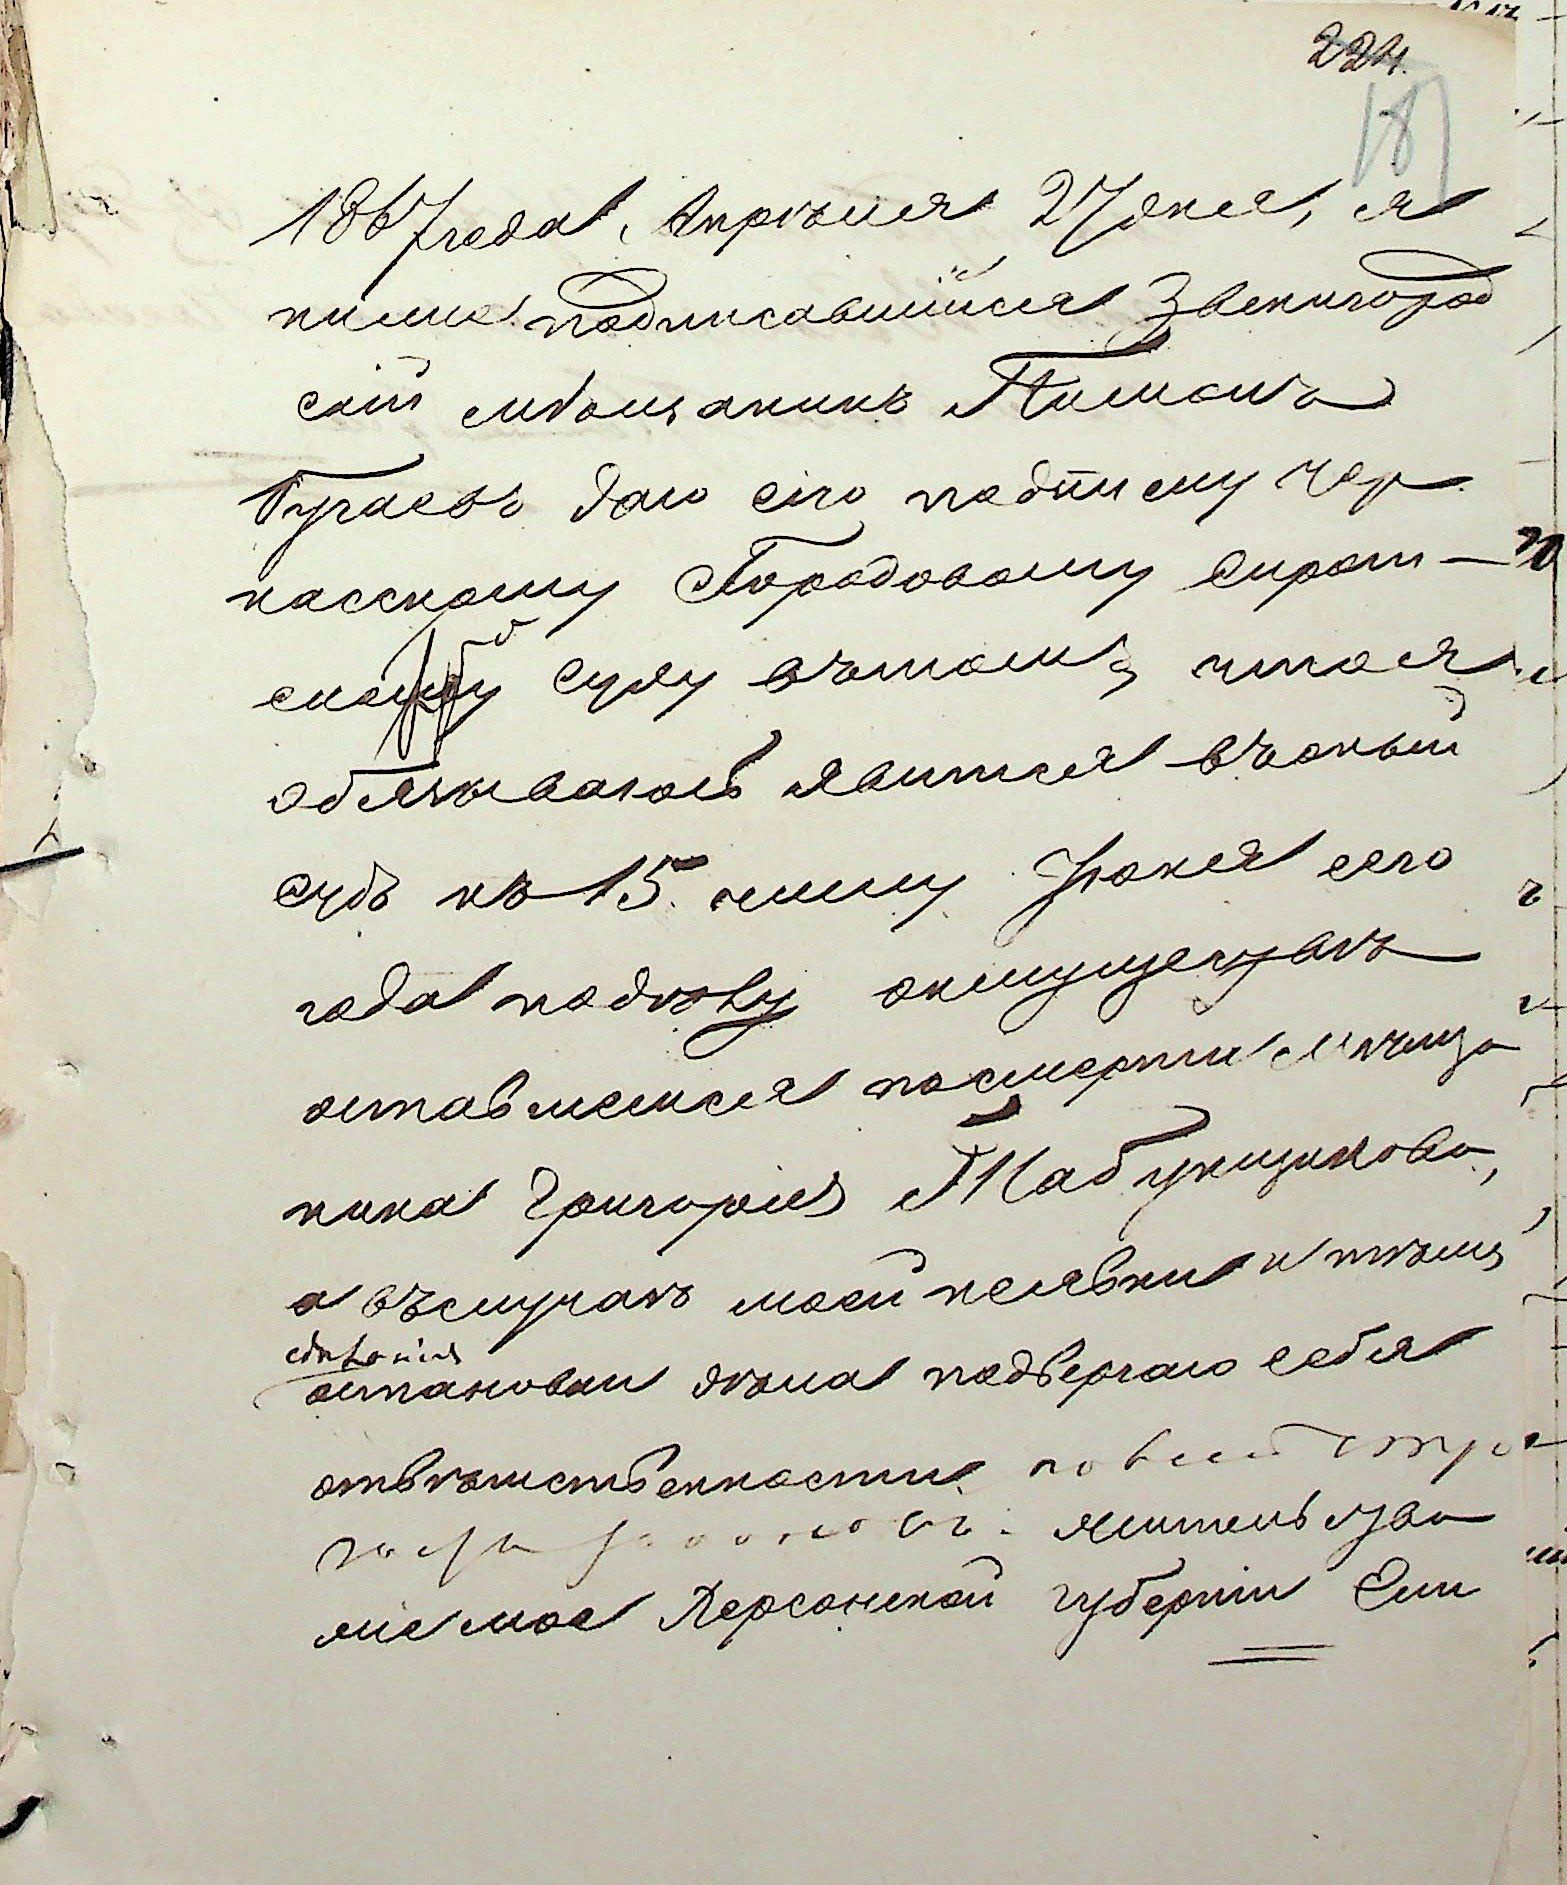 224.
187
1867 года, Апрѣля 27 дня, я
ниже подписавшійся Звенигород
скій мѣщанинъ
Бугаевъ даю сію подписку Чер
касскому Городовому Сирот-
скому Суду вътомъ, что я
обязываюсь явится въоный
судъ къ 15. числу Іюня сего
года подѣлу о имуществѣ
оставшемся посмерти мѣща
нина Григорія Табунщикова,
а въслучаѣ моей неявки и тѣмъ
остановки дѣла подвергаю себя
отвѣтственности по всей стро
гости законовъ. Жительство
мое Херсонской губерніи Ели